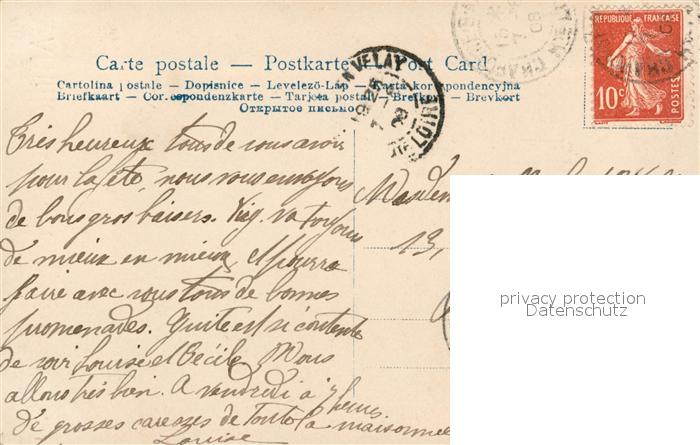 Carte postale — Postkarte — Post Card
Cartolina postale – Dopisnice – Levelező-Lap – Karta korespondencyjna
Briefkaart – Correspondenzkarte – Tarjeta postal – Brefkort – Brevkort
Открытое письмо
RÉPUBLIQUE FRANÇAISE
10c
POSTES
EN VELAY
08
Très heureux tous de vous avoir
pour la fête, nous vous envoyons
de bons gros baisers. va toujours
de mieux en mieux, et pourra
faire avec vous tous de bonnes
promenades. est si contente
de voir Louise et Cécile. Nous
allons très bien. A vendredi à 7 heures
de grosses caresses de toute la maisonnée
Louise
13,
privacy protection
Datenschutz